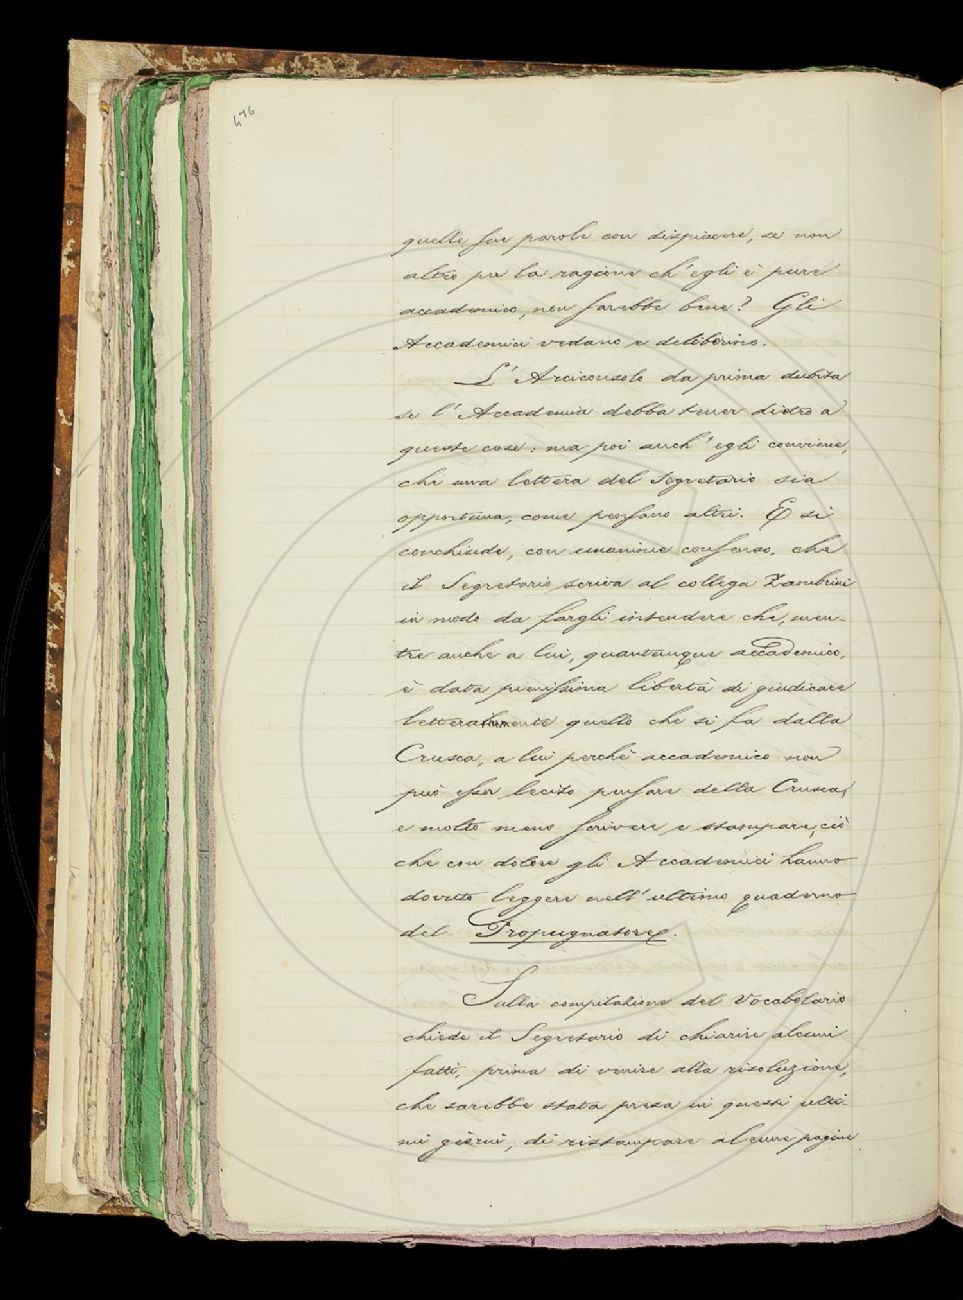 476
quelle sue parole con dispiacere, se non
altro per la ragione ch'egli è pure
accademico, non sarebbe bene? Gli
Accademici vedano e deliberino.
L'Arciconsolo da prima dubita
se l'Accademia debba tener dietro a
queste cose: ma poi anch'egli conviene,
che una lettera del Segretario sia
opportuna, come pensano altri. E si
conchiude, con unanime consenso, che
il Segretario scriva al collega Zambrini
in modo da fargli intendere che, men-
tre anche a lui, quantunque accademico,
è data pienissima libertà di giudicare
letterariamente quello che si fa dalla
Crusca, a lui perchè accademico non
può esser lecito pensare della Crusca,
e molto meno scrivere e stampare, ciò
che con dolore gli Accademici hanno
dovuto leggere nell'ultimo quaderno
del Propugnatore.
Sulla compilazione del Vocabolario
chiede il Segretario di chiarire alcuni
fatti, prima di venire alla risoluzione,
che sarebbe stata presa in questi ulti-
mi giorni, di ristampare alcune pagine